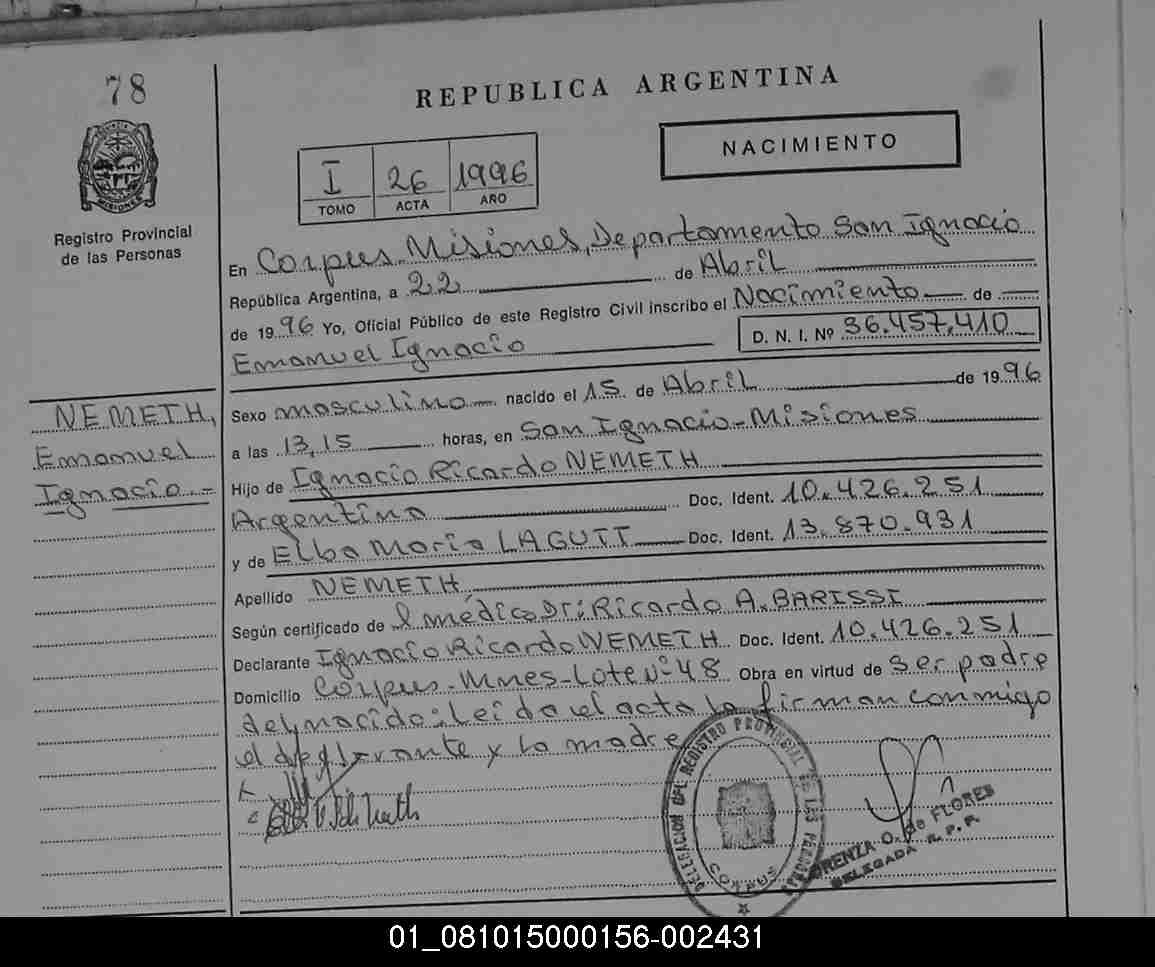 78
REPUBLICA ARGENTINA
NACIMIENTO
I 26 1996
TOMO ACTA AÑO
MISIONES
Registro Provincial
de las Personas
En Corpus-Misiones, Departamento San Ignacio
República Argentina, a 22 de Abril
de 1996 Yo, Oficial Público de este Registro Civil inscribo el Nacimiento de
Emanuel Ignacio D. N. I. Nº 36.457.410
NEMETH,
Emanuel
Ignacio.-
Sexo masculino nacido el 15 de Abril de 1996
a las 13,15 horas, en San Ignacio-Misiones
Hijo de Ignacio Ricardo NEMETH
Argentino Doc. Ident. 10.426.251
y de Elba Maria LAGUTT Doc. Ident. 13.870.931
Apellido NEMETH,
Según certificado de el médico Dr: Ricardo A. BARISSI
Declarante Ignacio Ricardo NEMETH Doc. Ident. 10.426.251
Domicilio Corpus-Mnes-Lote Nº 48 Obra en virtud de ser padre
del nacido: Leída el acta la firman conmigo
el declarante y la madre
DELEGACION DEL REGISTRO PROVINCIAL DE LAS PERSONAS
CORPUS
O. de FLORES
DELEGADA R. P. P.
01_081015000156-002431